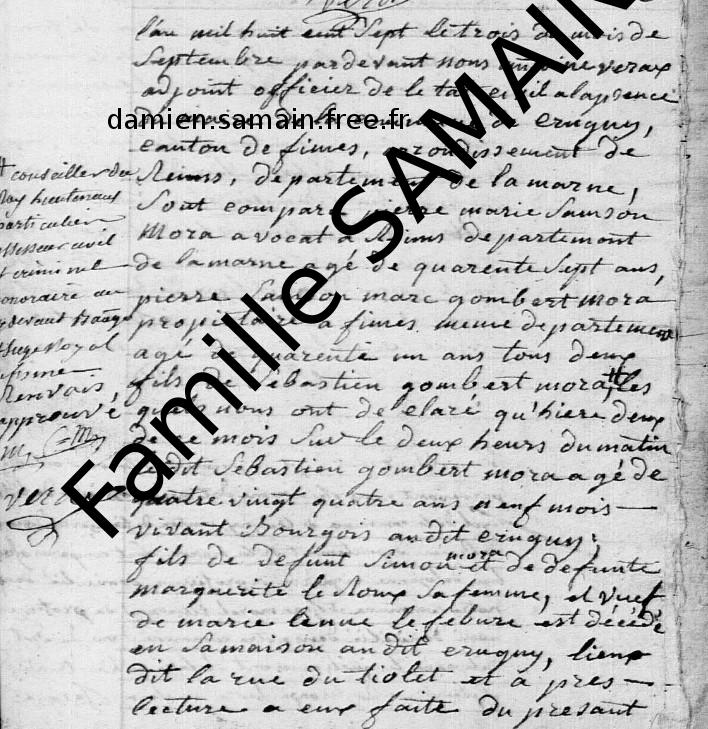 l'an mil huit cent Sept le trois du mois de
Septembre par devant nous antoine verax
adjoint officier de le tat civil a la presence
de la commune de crugny,
canton de fimes, arondissement de
Reims, departement de la marne,
Sont comparé pierre marie Samson
Mora avocat a Reims departement
de la marne agé de quarente Sept ans,
pierre Samson marc gombert mora
propiétaire a fimes meme departement
agé de quarente un ans tous deux
fils de Sébastien gombert mora, # les
quels nous ont de claré qu'hiere deux
de ce mois Sur le deux heurs du matin
le dit Sebastien gombert mora agé de
quatre vingt quatre ans neuf mois —
vivant Bourgois au dit crugny;
fils de defunt Simon mora et de defunte
marguerite le Roux Sa femme, et vuef
de marie lenne lefebure est décédé
en Sa maison au dit crugny, lieux
dit la rue du tiolet et a pres —
lecture a eux faite du presant
# conseiller du
Roy lieutenant
particulier
assesseur civil
et criminel
honoraire au
cy devant Bailliage
royal
Renvois
approuvé
damien.samain.free.fr
Famille SAMAIN